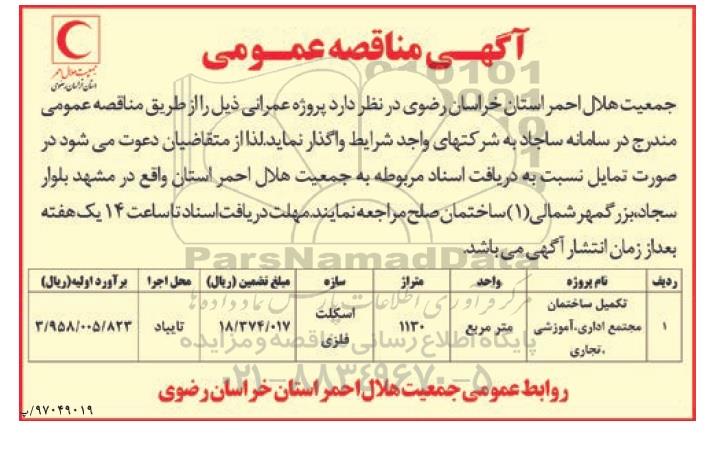 آگهـی مناقصه عمـومی
جمعیت هلال احمر
استان خراسان رضوی
جمعیت هلال احمر استان خراسان رضوی در نظر دارد پروژه عمرانی ذیل را از طریق مناقصه عمومی
مندرج در سامانه ساجاد به شرکتهای واجد شرایط واگذار نماید.لذا از متقاضیان دعوت می شود در
صورت تمایل نسبت به دریافت اسناد مربوطه به جمعیت هلال احمر استان واقع در مشهد بلوار
سجاد،بزرگمهر شمالی(۱)ساختمان صلح مراجعه نمایند.مهلت دریافت اسناد تا ساعت ۱۴ یک هفته
بعد از زمان انتشار آگهی می باشد.
ParsNamadData
ردیف نام پروژه واحد متراژ سازه مبلغ تضمین (ریال) محل اجرا برآورد اولیه(ریال)
۱ تکمیل ساختمان مجتمع اداری،آموزشی ،تجاری متر مربع ۱۱۳۰ اسکلت فلزی ۱۸/۳۷۴/۰۱۷ تایباد ۳/۹۵۸/۰۰۵/۸۲۳
مرکز فرآوری اطلاعات پارس نماد داده ها
پایگاه اطلاع رسانی مناقصه و مزایده
۰۲۱-۸۸۳۴۹۶۷۰-۵
روابط عمومی جمعیت هلال احمر استان خراسان رضوی
۹۷۰۴۹۰۱۹/پ